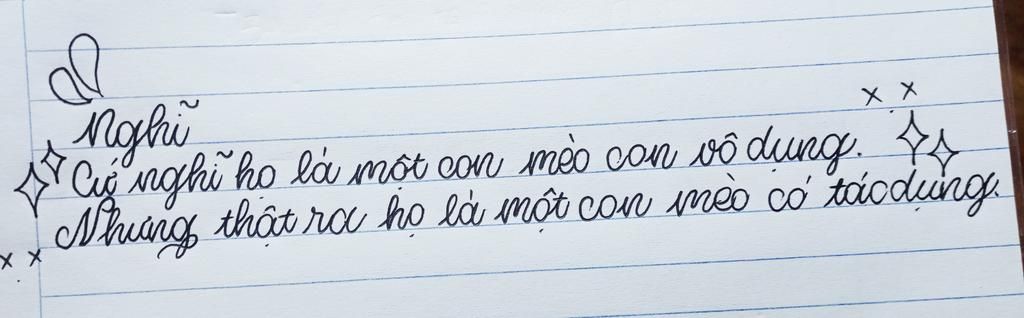 Nghĩ
Cứ nghĩ họ là một con mèo con vô dụng.
Nhưng thật ra họ là một con mèo có tác dụng.